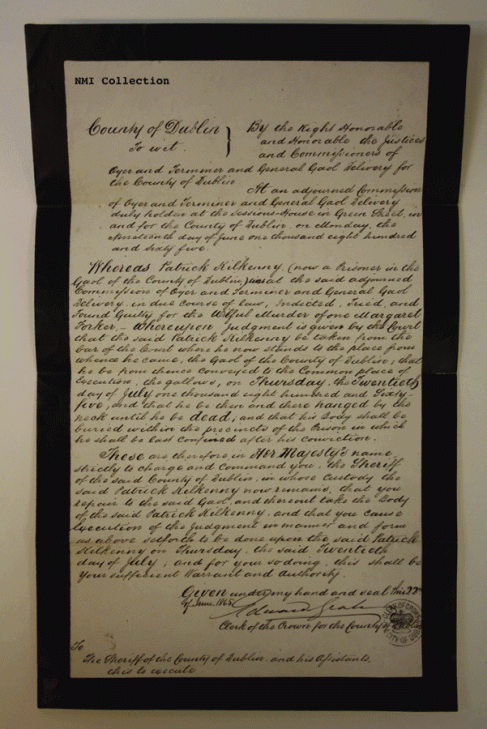 NMI Collection
County of Dublin
To wit.
By the Right Honorable
and Honorable the Justices
and Commissioners of
Oyer and Terminer and General Gaol Delivery for
the County of Dublin
At an adjourned Commission
of Oyer and Terminer and General Gaol Delivery
duly holden at the Sessions-House in Green Street, in
and for the County of Dublin, on Monday, the
Nineteenth day of June one thousand eight hundred
and sixty five.
Whereas Patrick Kilkenny, (now a Prisoner in the
Gaol of the County of Dublin) at the said adjourned
Commission of Oyer and Terminer and General Gaol
Delivery, in due Course of Law, Indicted, Tried, and
Found Guilty for the Wilful Murder of one Margaret
Forker, – Whereupon Judgment is given by the Court
that the said Patrick Kilkenny be taken from the
bar of the Court where he now stands to the place from
whence he came, the Gaol of the County of Dublin, that
he be from thence conveyed to the Common place of
Execution, the gallows, on Thursday, the Twentieth
day of July one thousand eight hundred and Sixty-
five, and that he be then and there hanged by the
neck until he be dead, and that his Body shall be
buried within the precincts of the Prison in which
he shall be last confined after his conviction.
These are therefore in Her Majesty's name
strictly to charge and Command you, the Sheriff
of the said County of Dublin, in whose Custody the
said Patrick Kilkenny now remains, that you
repair to the said Gaol, and thereout take the Body
of the said Patrick Kilkenny, and that you Cause
execution of the Judgment in manner and form
as above setforth to be done upon the said Patrick
Kilkenny on Thursday, the said Twentieth
day of July, and for your so doing, this shall be
your sufficient Warrant and Authority.
Given under my hand and seal this 22
of June 1865
Edward
Clerk of the Crown for the County of
To
The Sheriff of the County of Dublin, and his Assistants,
this to execute